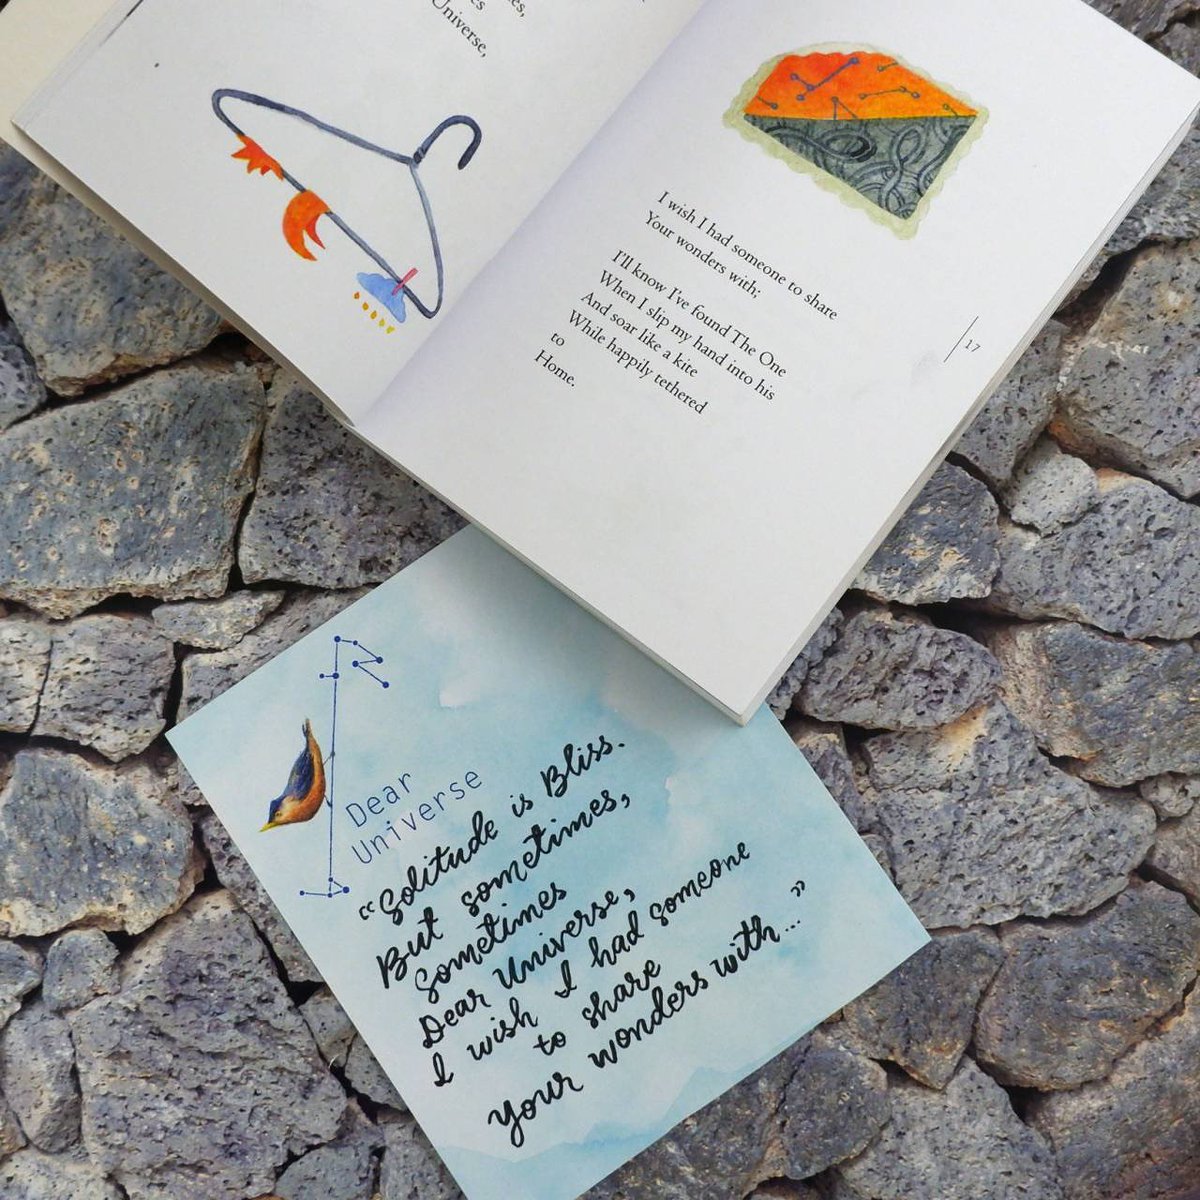 Universe,
I wish I had someone to share
Your wonders with;
I'll know I've found The One
When I slip my hand into his
And soar like a kite
While happily tethered
to
Home.
17
Dear
Universe
“Solitude is Bliss.
But sometimes,
Sometimes
Dear Universe,
I wish I had someone
to share
your wonders with...”